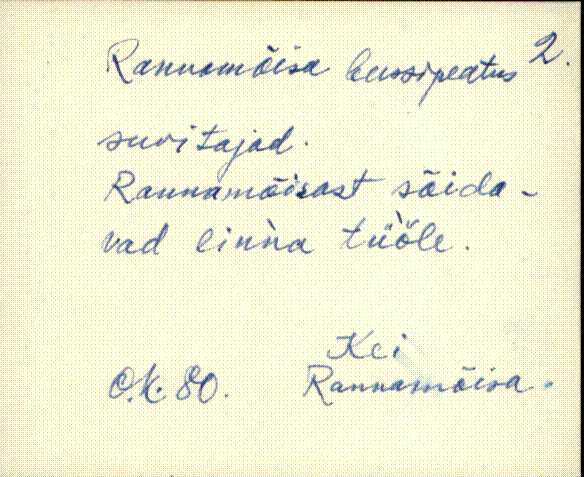 Rannamõisa bussipeatus 2.
suvitajad.
Rannamõisast sõida-
vad liǹna tüöle.
Kei
O.K. 80. Rannamõisa.